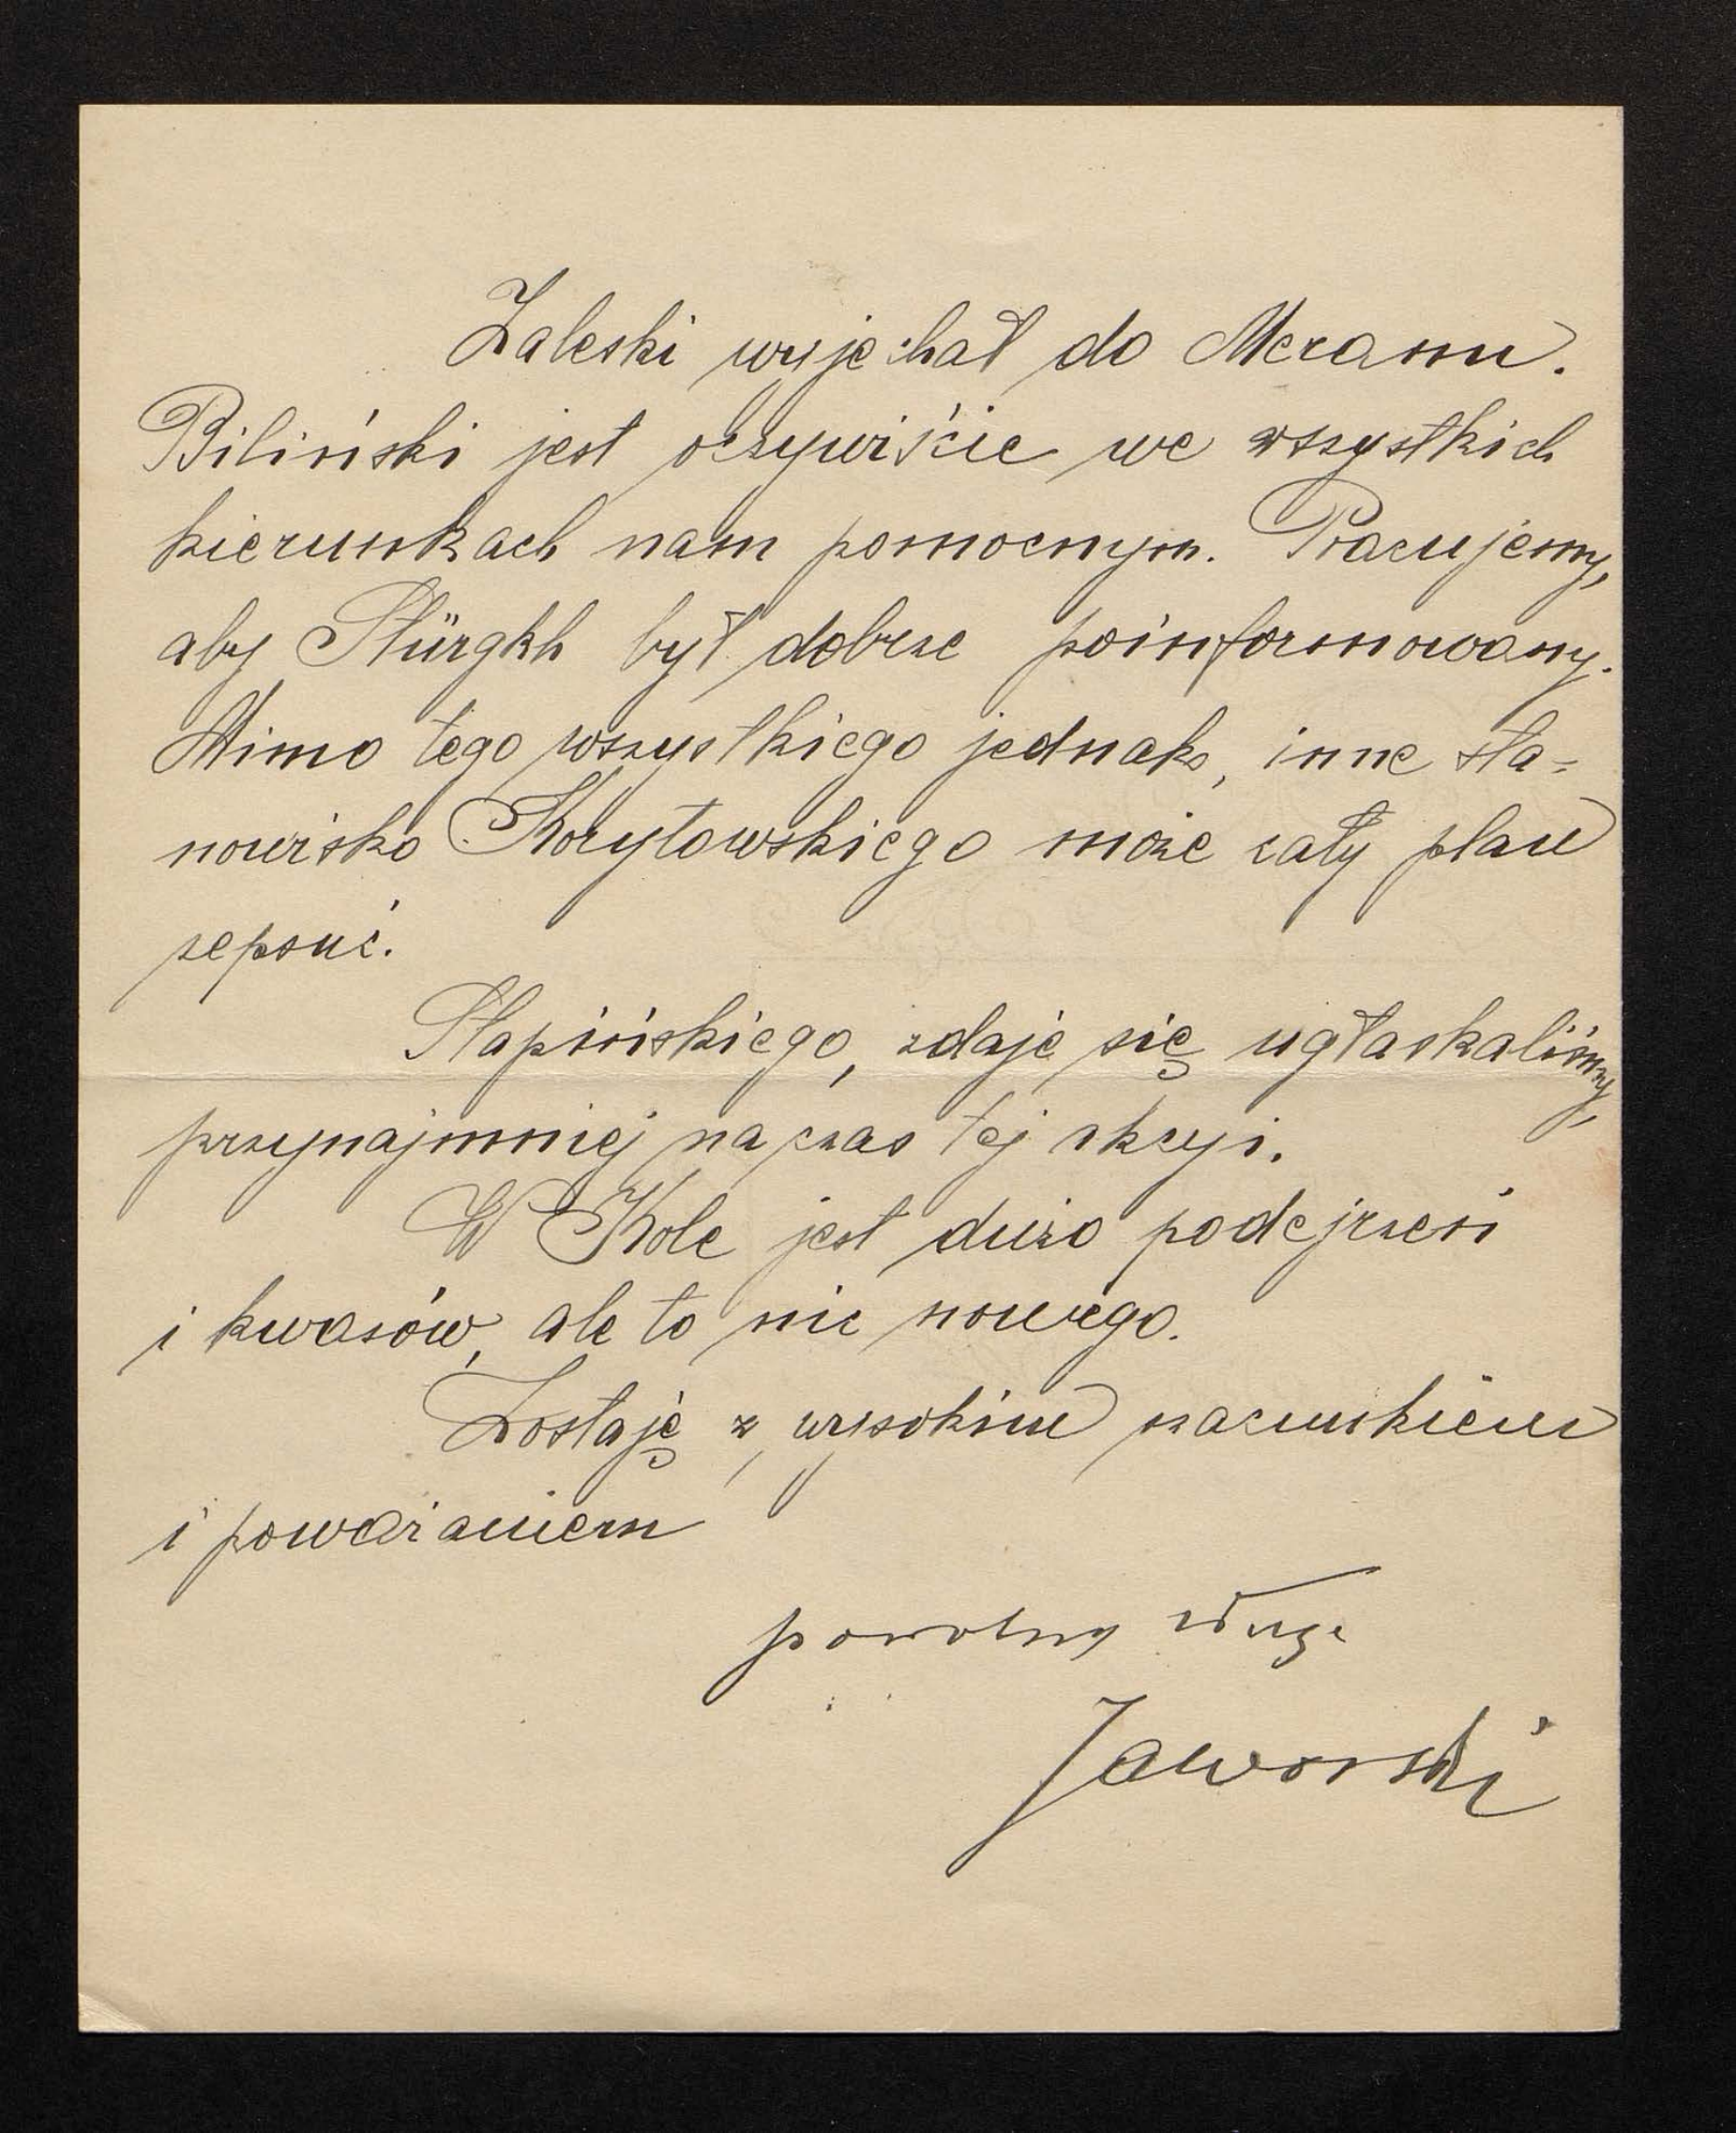 Zaleski wyjechał do Meranu.
Biliński jest oczywiście we wszystkich
kierunkach nam pomocnym. Pracujemy,
aby Stürgkh był dobrze poinformowany.
Mimo tego wszystkiego jednak, inne sta-
nowisko Korytowskiego może cały plan
zepsuć.
Stapińskiego, zdaje się ugłaskaliśmy,
przynajmniej na czas tej akcyi.
W Kole jest dużo podejrzeń
i kwasów, ale to nic nowego.
Zostaję z wysokim szacunkiem
i poważaniem
powolny sługa
Jaworski